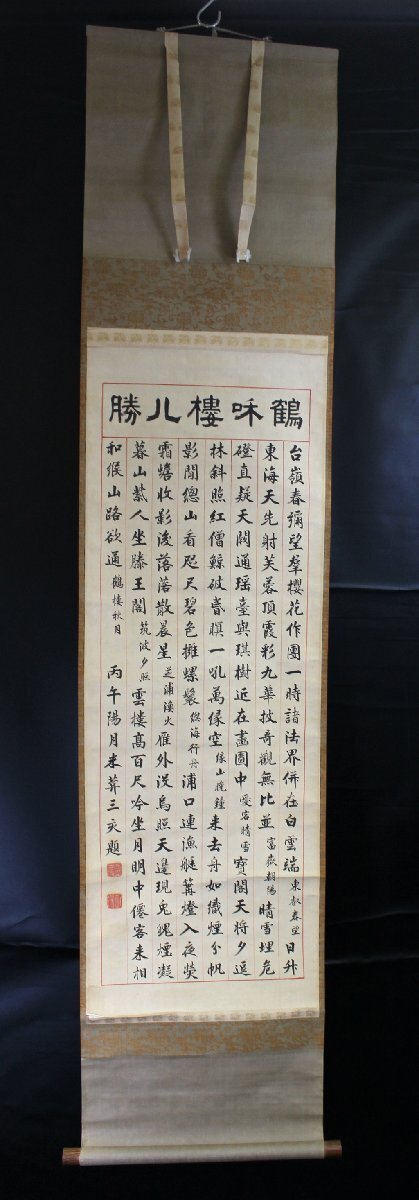 鶴咊樓八勝
台嶺春彌望羣櫻花作團一時諸法界併在白雲端 東叡春望 日升
東海天先射芙蓉頂霞彩九華扠奇觀無比並 富嶽朝陽 晴雪埋危
磴直疑天闕通瑶臺與琪樹近在畫圖中 愛宕晴雪 寶閣天將夕返
林斜照紅僧鯨破昏暝一吼萬緣空 緣山晩鐘 来去舟如織煙分帆
影閒總山看咫尺碧色擁螺鬟 總海行舟 浦口連漁艇篝燈入夜熒
霜蟾收影後落落散晨星 芝浦漁火 雁外没烏照天邊現兎魄煙凝
暮山紫人坐滕王閣 筑波夕照 雲樓高百尺吟坐月明中僊客来相
和緱山路欲通 鶴樓秋月 丙午陽月 三 題